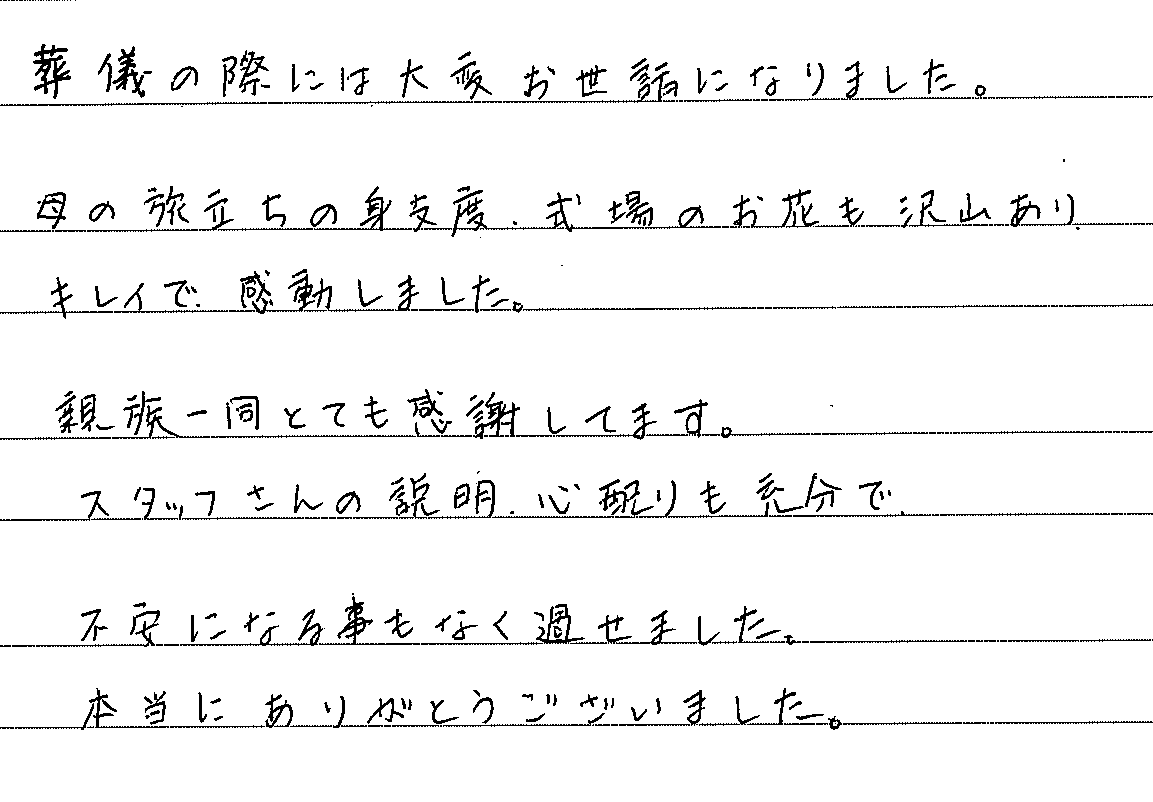 葬儀の際には大変お世話になりました。
母の旅立ちの身支度、式場のお花も沢山あり
キレイで、感動しました。
親族一同とても感謝してます。
スタッフさんの説明、心配りも充分で、
不安になる事もなく過せました。
本当にありがとうございました。